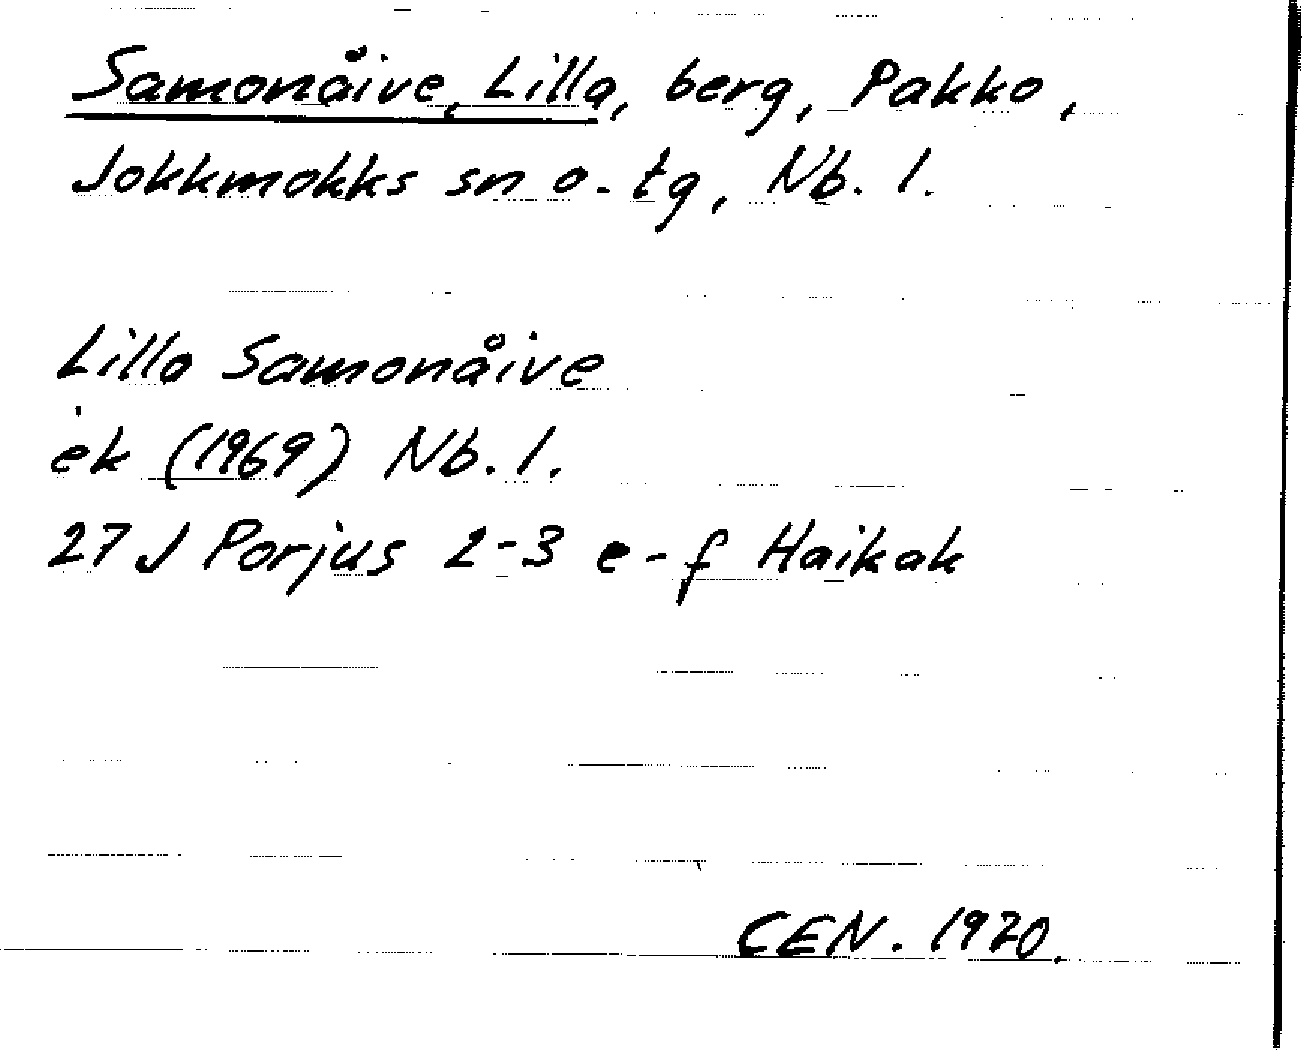 Samonåive, Lilla, berg, Pakko,
Jokkmokks sn o. tg, Nb. l.
Lilla Samonåive
ek (1969) Nb. l.
27 J Porjus 2-3 e-f Haikak
CEN. 1970.